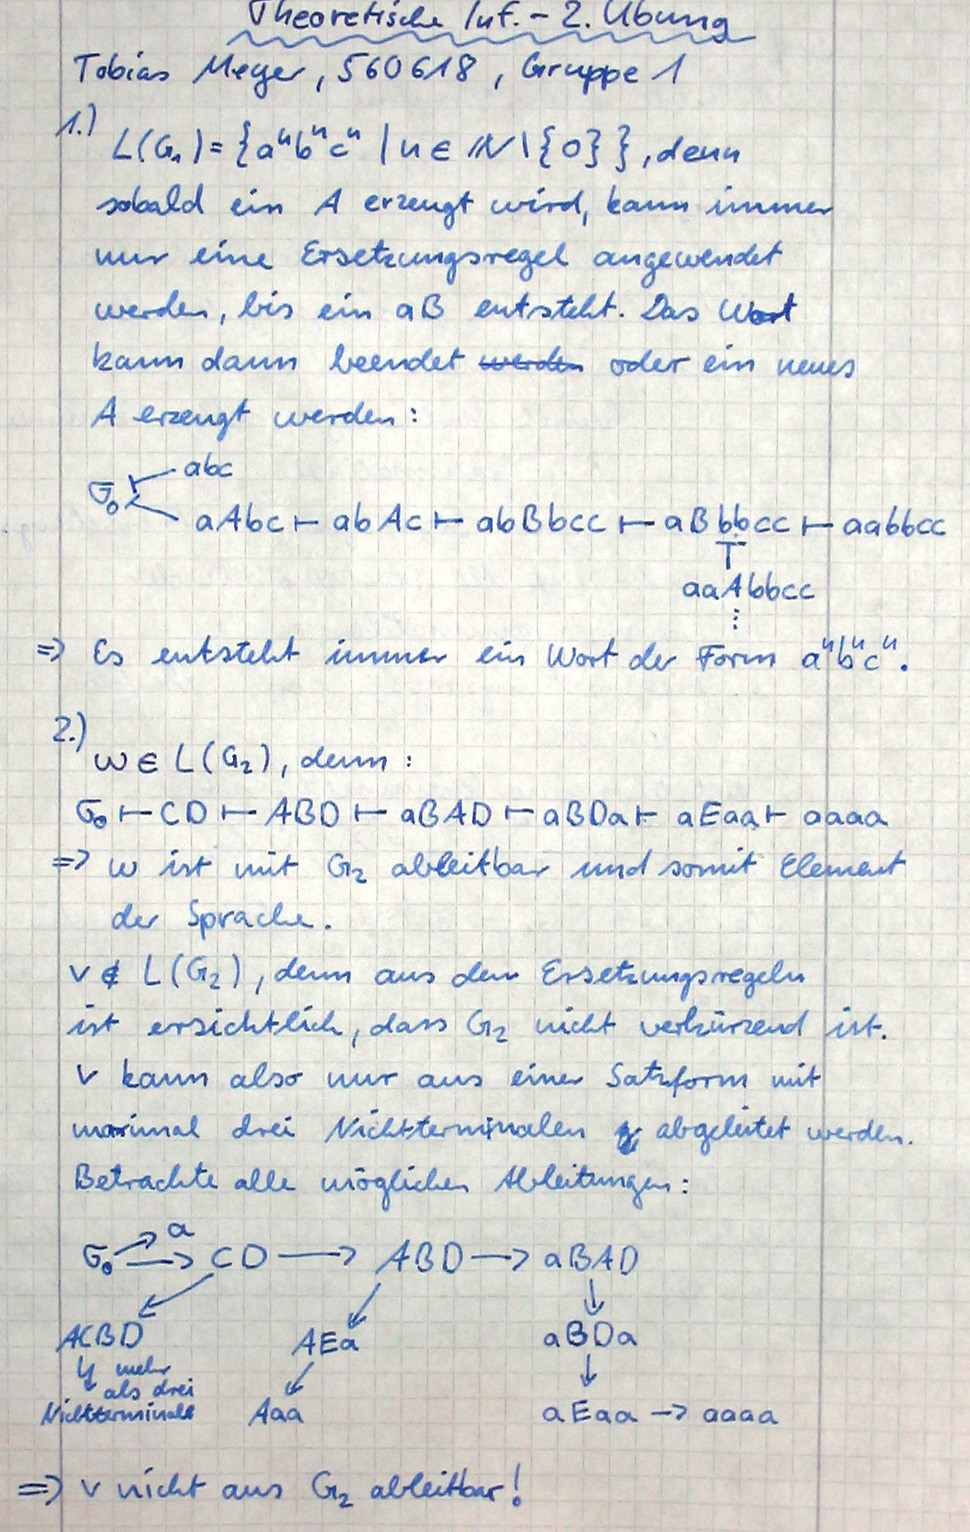 Theoretische Inf. - 2. Übung
Tobias Meyer, 560618, Gruppe 1
1.)
L(G₁) = {aⁿbⁿcⁿ | n ∈ ℕ \ {0}}, denn
sobald ein A erzeugt wird, kann immer
nur eine Ersetzungsregel angewendet
werden, bis ein aB entsteht. Das Wort
kann dann beendet werden oder ein neues
A erzeugt werden:
abc
σ₀
aAbc ⊢ abAc ⊢ abBbcc ⊢ aBbbcc ⊢ aabbcc
⊤
aaAbbcc
⋮
=> Es entsteht immer ein Wort der Form aⁿbⁿcⁿ.
2.)
w ∈ L(G₂), denn:
σ₀ ⊢ CD ⊢ ABD ⊢ aBAD ⊢ aBDa ⊢ aEaa ⊢ aaaa
=> w ist mit G₂ ableitbar und somit Element
der Sprache.
v ∉ L(G₂), denn aus den Ersetzungsregeln
ist ersichtlich, dass G₂ nicht verkürzend ist.
v kann also nur aus einer Satzform mit
maximal drei Nichtterminalen abgeleitet werden.
Betrachte alle möglichen Ableitungen:
a
σ₀ → CD → ABD → aBAD
ACBD AEa aBDa
↯ mehr
als drei
Nichtterminale Aaa aEaa → aaaa
=> v nicht aus G₂ ableitbar!